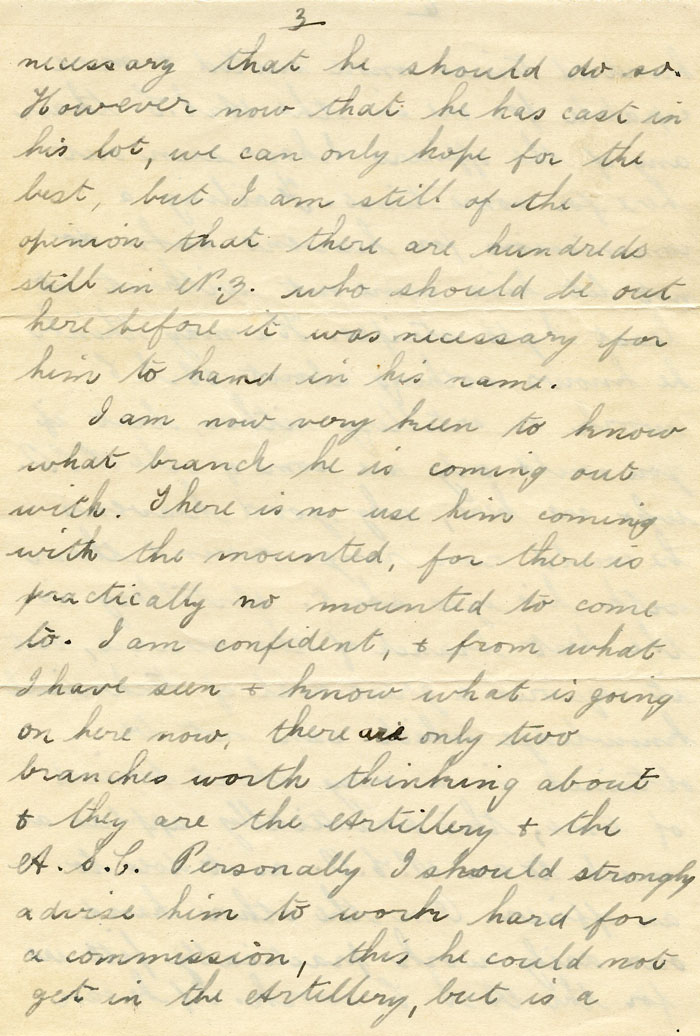 3
necessary that he should do so.
However now that he has cast in
his lot, we can only hope for the
best, but I am still of the
opinion that there are hundreds
still in N.Z. who should be out
here before it was necessary for
him to hand in his name.
I am now very keen to know
what branch he is coming out
with. There is no use him coming
with the mounted, for there is
practically no mounted to come
to. I am confident, & from what
I have seen & know what is going
on here now, there are only two
branches worth thinking about
& they are the Artillery &, the
A.S.C. Personally I should strongly
advise him to work hard for
a commission, this he could not
get in the Artillery, but is a